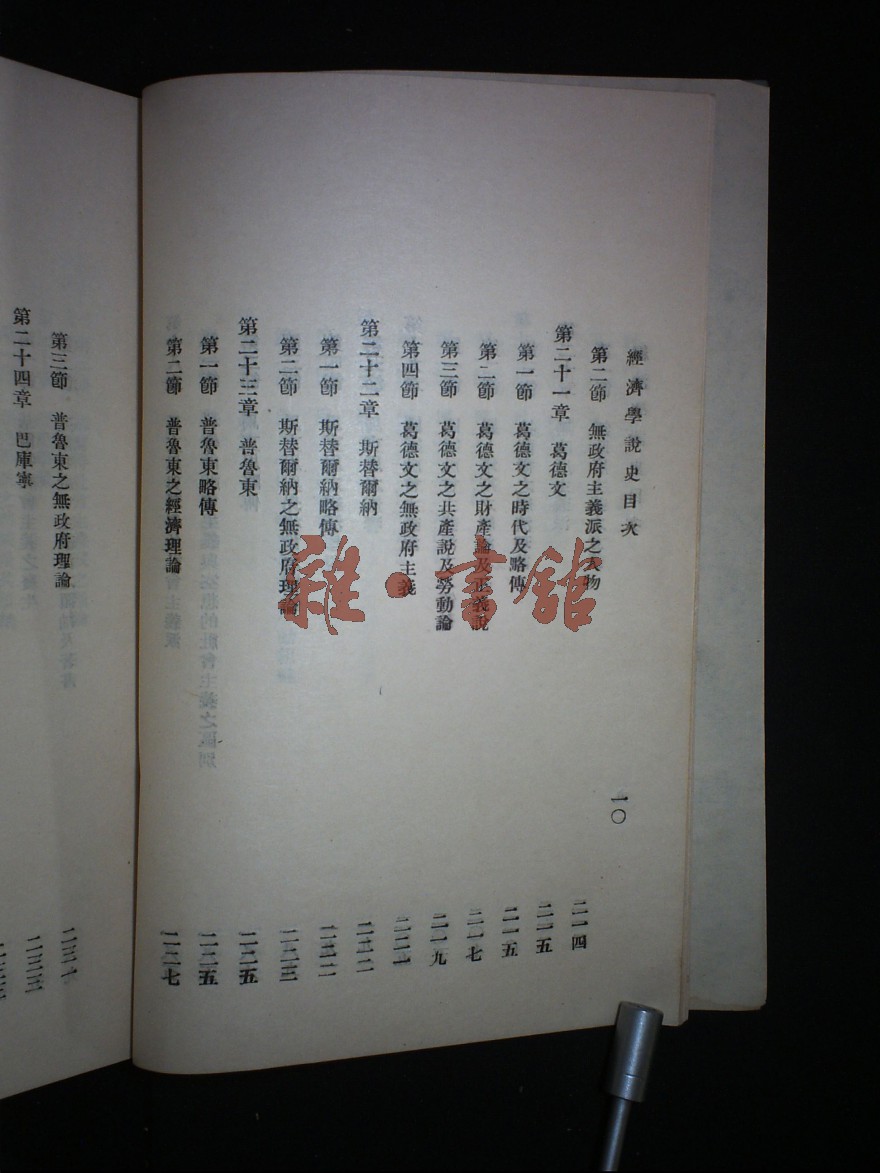 經濟學說史目次
一〇
第二節 無政府主義派之人物 二一四
第二十一章 葛德文 二一五
第一節 葛德文之時代及略傳 二一五
第二節 葛德文之財產論及正義說 二一七
第三節 葛德文之共產說及勞動論 二一九
第四節 葛德文之無政府主義 二二一
第二十二章 斯替爾納 二二二
第一節 斯替爾納略傳 二二二
第二節 斯替爾納之無政府理論 二二三
第二十三章 普魯東 二二五
第一節 普魯東略傳 二二五
第二節 普魯東之經濟理論 二二七
第三節 普魯東之無政府理論 二三一
第二十四章 巴庫寧 二三三
雜·書館